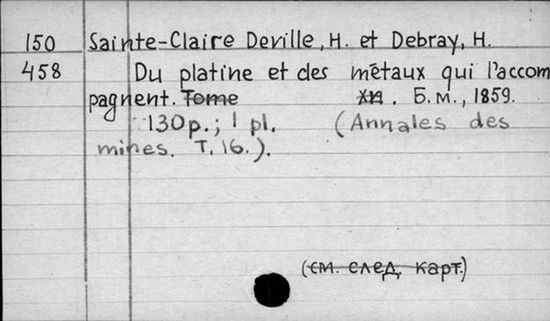 150 Sainte-Claire Deville, H. et Debray, H.
458 Du platine et des métaux qui l'accom
pagnent. Tome XVI. Б.м., 1859.
130p.; 1 pl. (Annales des
mines. T. 16.).
(см. след. карт.)